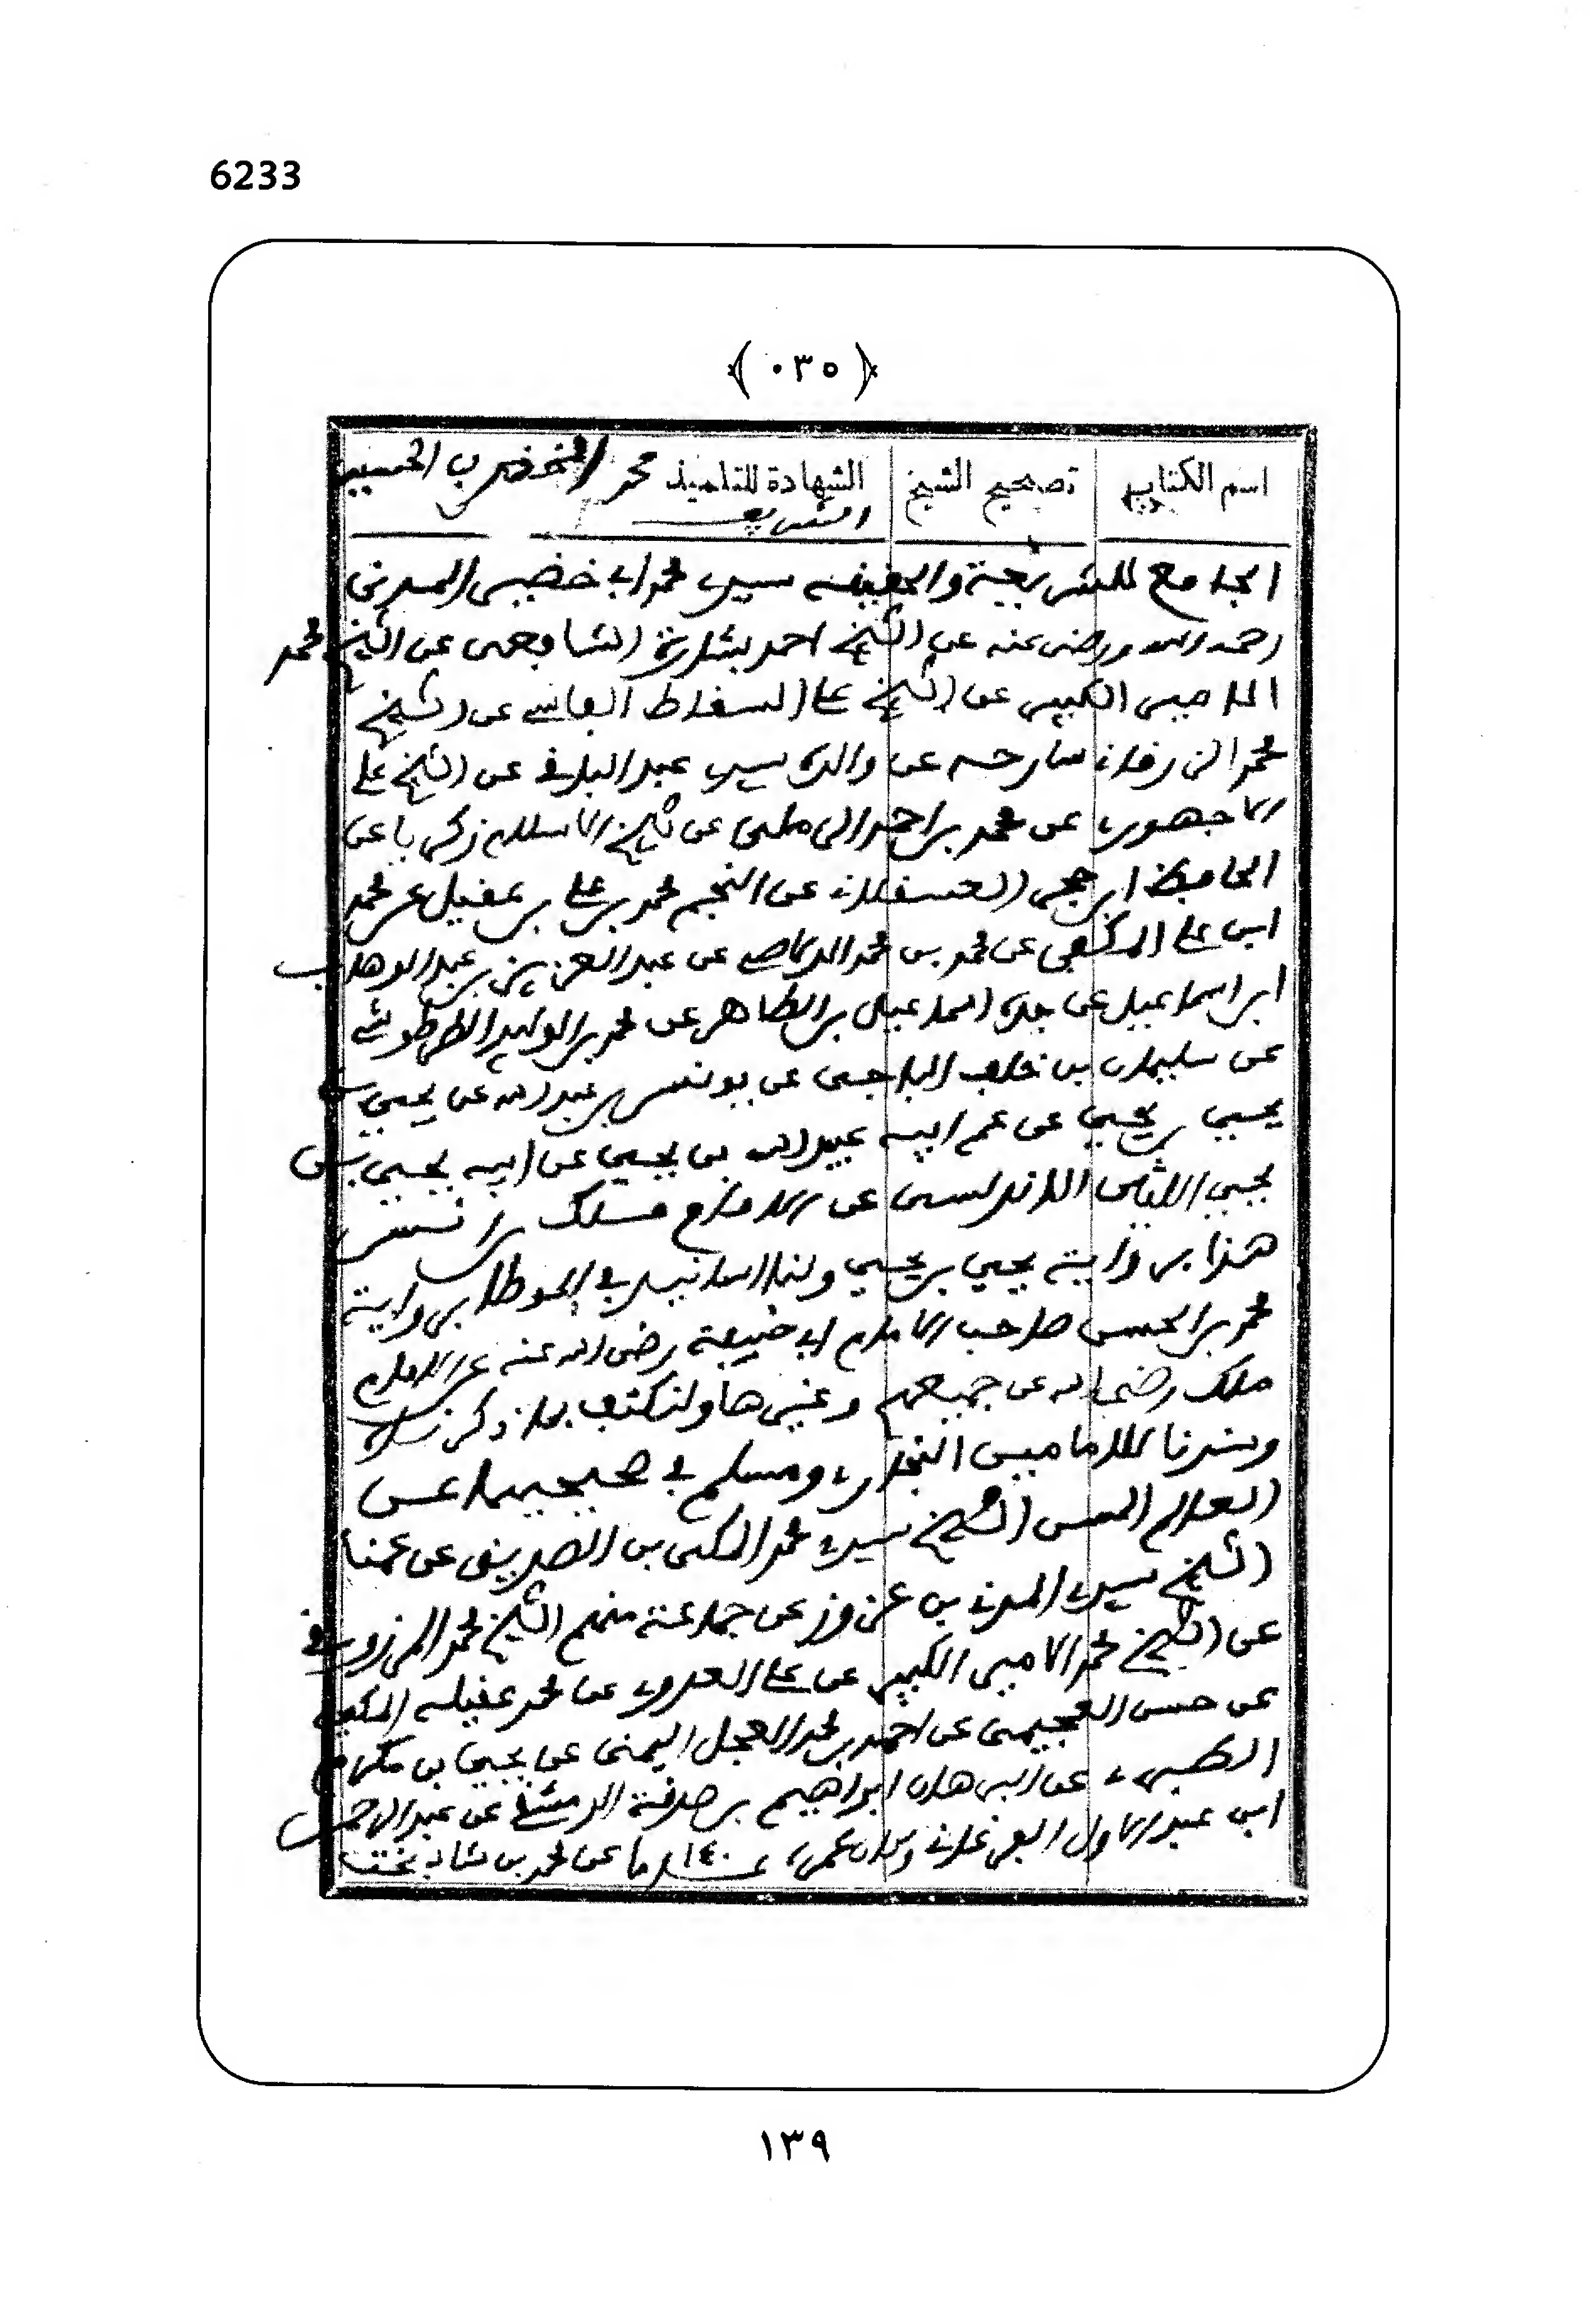 6233
﴿ ٠٣٥ ﴾
اسم الكتاب تصحيح الشيخ الشهادة للتلميذ محمد الخضر بن الحسين
الشريف
الجامع للشريعة والحقيقة سيدي محمد ابي خضير المدني
رحمه الله ورضي عنه عن الشيخ احمد بشارة الشافعي عن الشيخ محمد
الامير الكبير عن الشيخ علي السقاط الفاسي عن الشيخ
محمد الزرقاني شارحه عن والده سيدي عبد الباقي عن الشيخ علي
الاجهوري عن محمد بن احمد الرملي عن شيخ الاسلام زكرياء عن
الحافظ ابن حجر العسقلاني عن النجم محمد بن علي بن عقيل عن محمد
ابن علي المكفي عن محمد بن محمد الدلاصي عن عبد العزيز بن عبد الوهاب
ابن اسماعيل عن جده اسماعيل بن الطاهر عن محمد بن الوليد الطرطوشي
عن سليمان بن خلف الباجي عن يونس بن عبد الله عن يحيى بن
يحيى بن يحيى عن عم ابيه عبيد الله بن يحيى عن ابيه يحيى بن
يحيى الليثي الاندلسي عن الامام مالك بن انس
هذا برواية يحيى بن يحيى ولنا اسانيد في الموطا برواية
محمد بن الحسن صاحب الامام ابي حنيفة رضي الله عنه عن الامام
مالك رضي الله عن جميعهم وغيرها ولنكتف بما ذكرناه
وسندنا للامامين البخاري ومسلم في صحيحيهما عن
العالم المسن الشيخ سيدي محمد المكي بن الصديق عن عمنا
الشيخ سيدي المدني بن عزوز عن جماعة منهم الشيخ محمد المرزوقي
عن الشيخ محمد الامير الكبير عن علي العدوي عن محمد عقيلة المكي
عن حسن العجيمي عن احمد بن محمد العجل اليمني عن يحيى بن مكرم
الطبري عن البرهان ابراهيم بن صدقة الدمشقي عن عبد الرحمن
ابن عبد الاول الفرغاني وكان عمره ١٤٠ عاما عن محمد بن شاذبخت
١٣٩